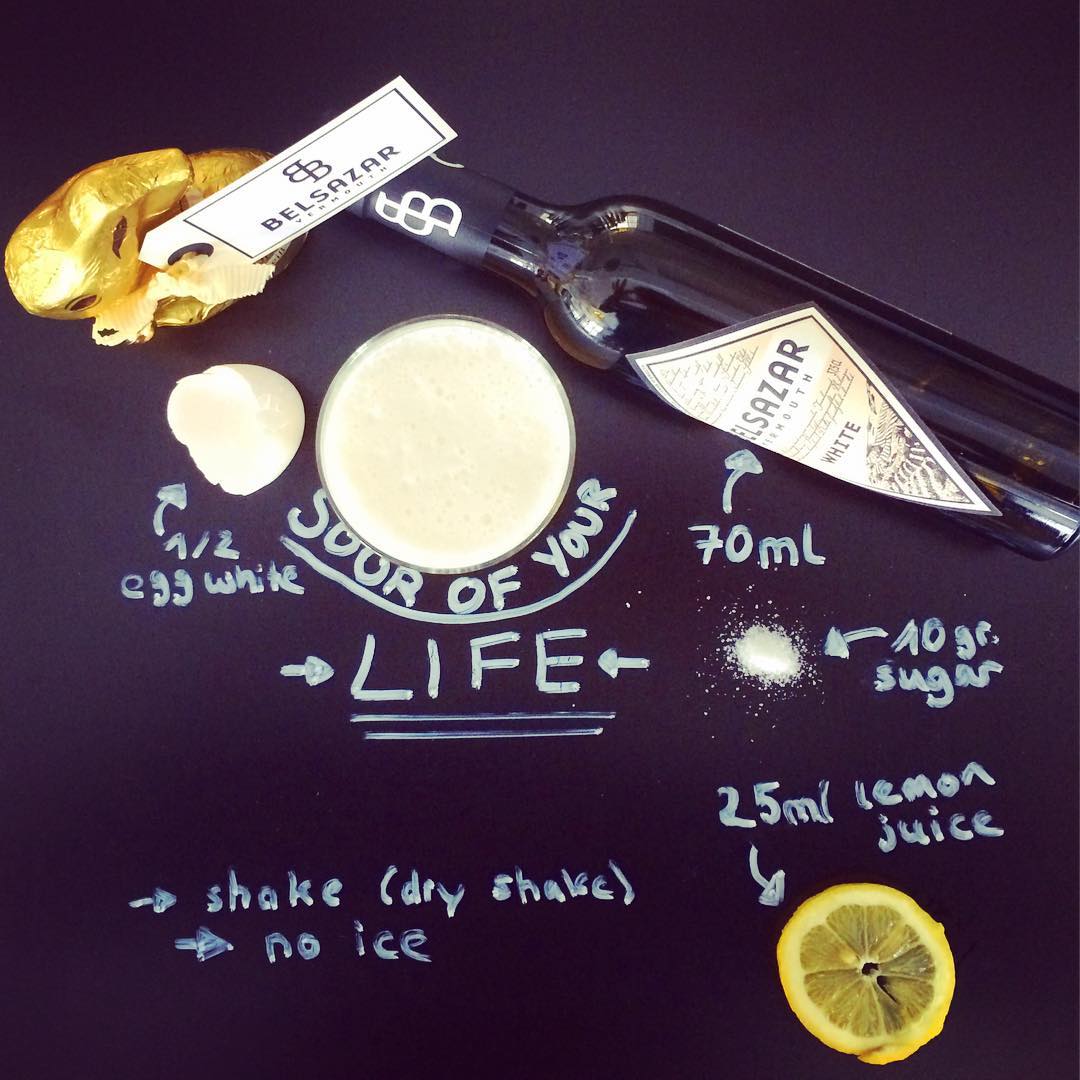 BB
BELSAZAR
VERMOUTH
BB
BELSAZAR
VERMOUTH
WHITE
70ml
1/2
egg white
SOUR OF YOUR
LIFE
10 gr.
sugar
25ml lemon
juice
shake (dry shake)
no ice